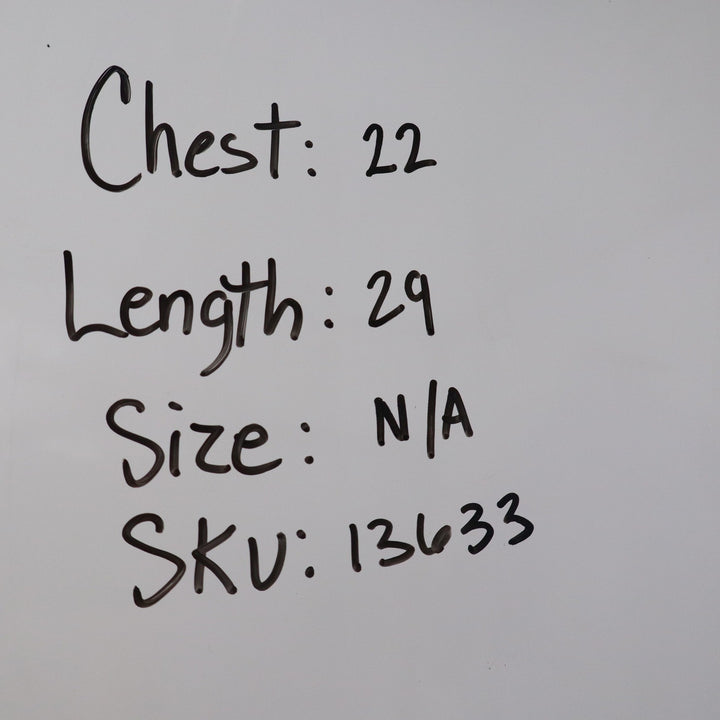 Chest: 22
Length: 29
Size: N/A
SKU: 13633